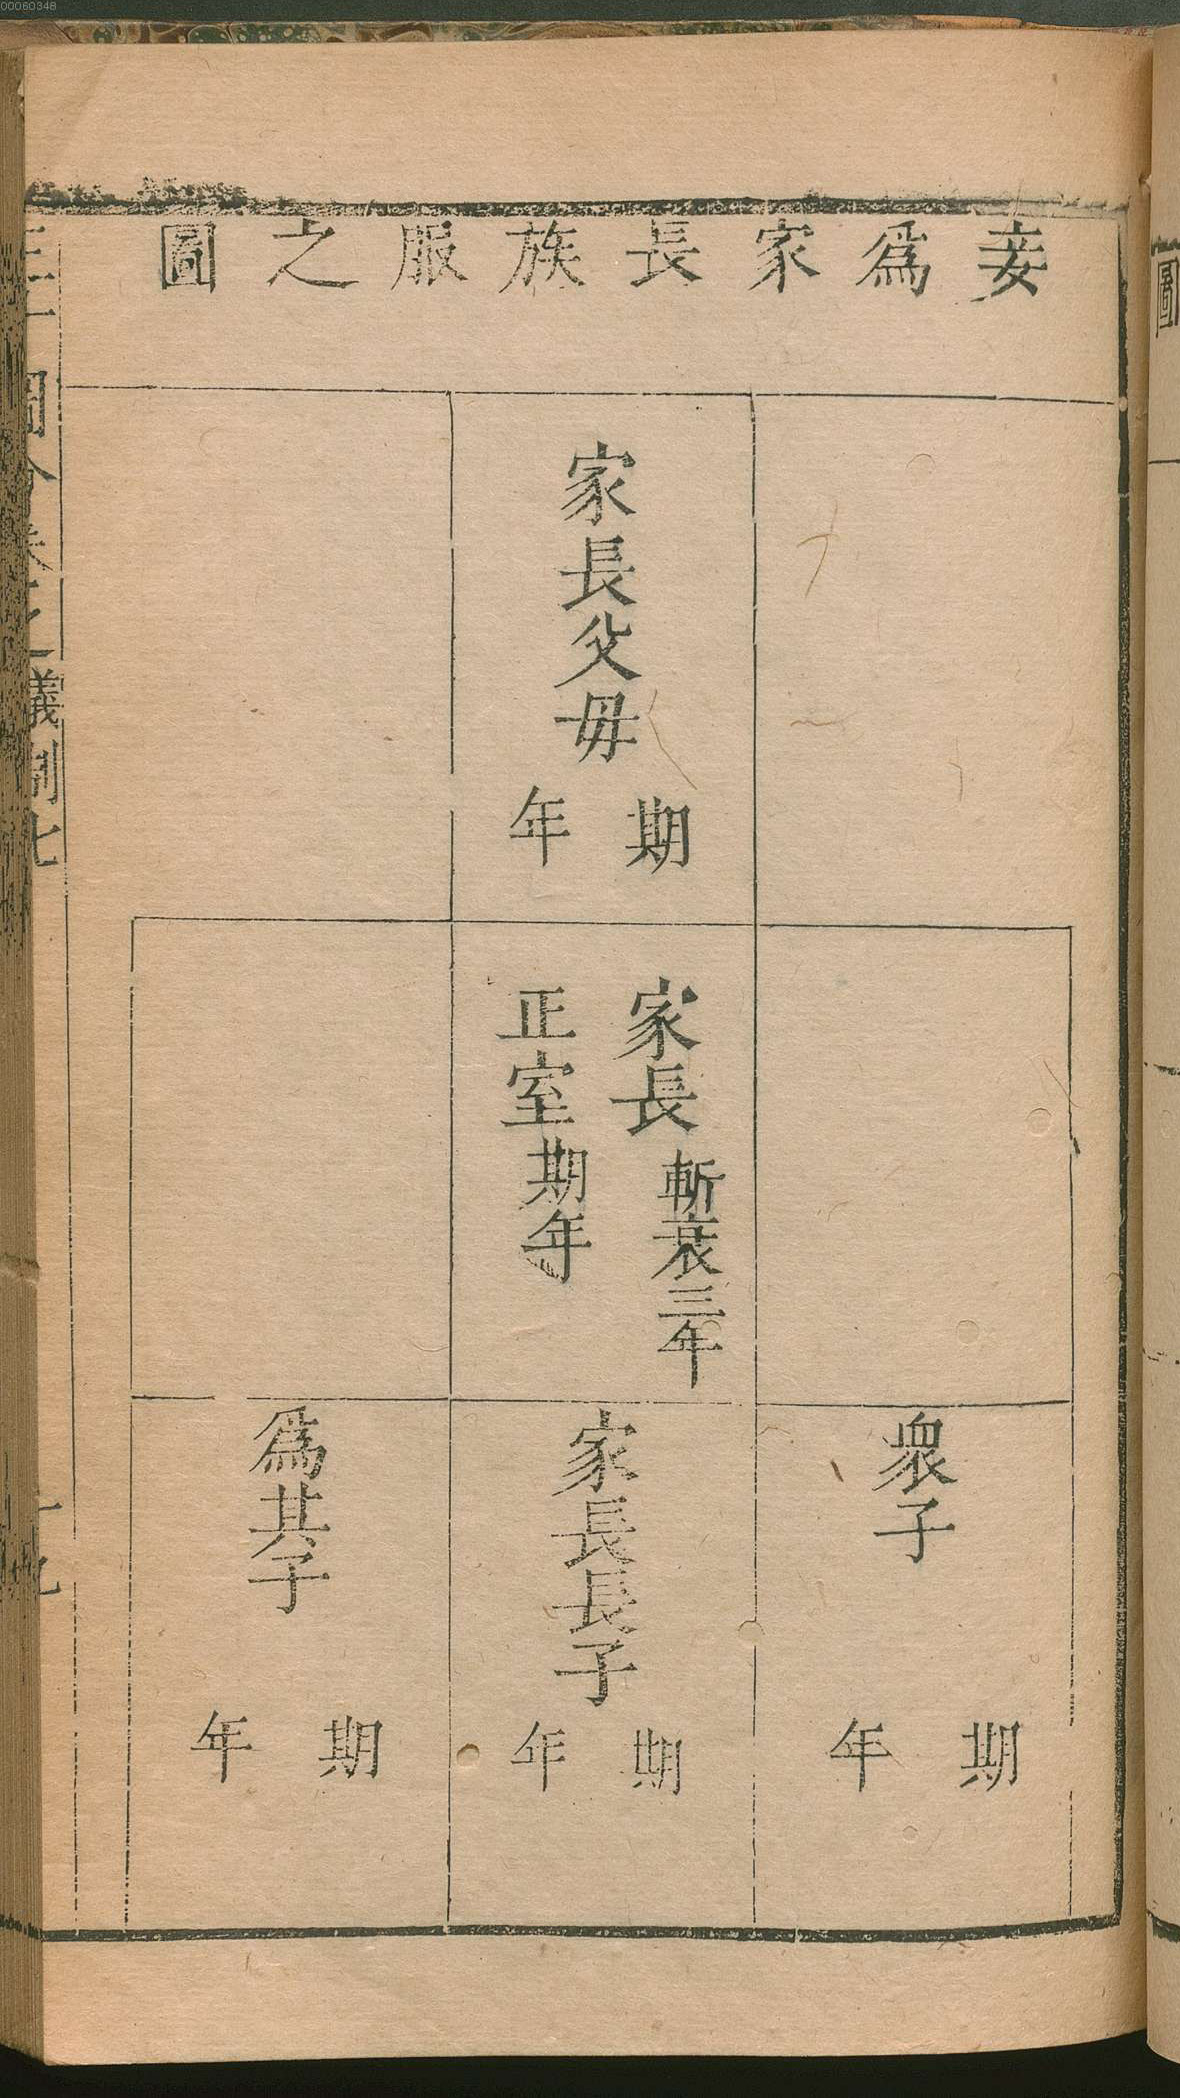 妾爲家長族服之圖
家長父母
期年
家長 斬衰三年
正室 期年
衆子
期年
家長長子
期年
爲其子
期年
圖
00060348